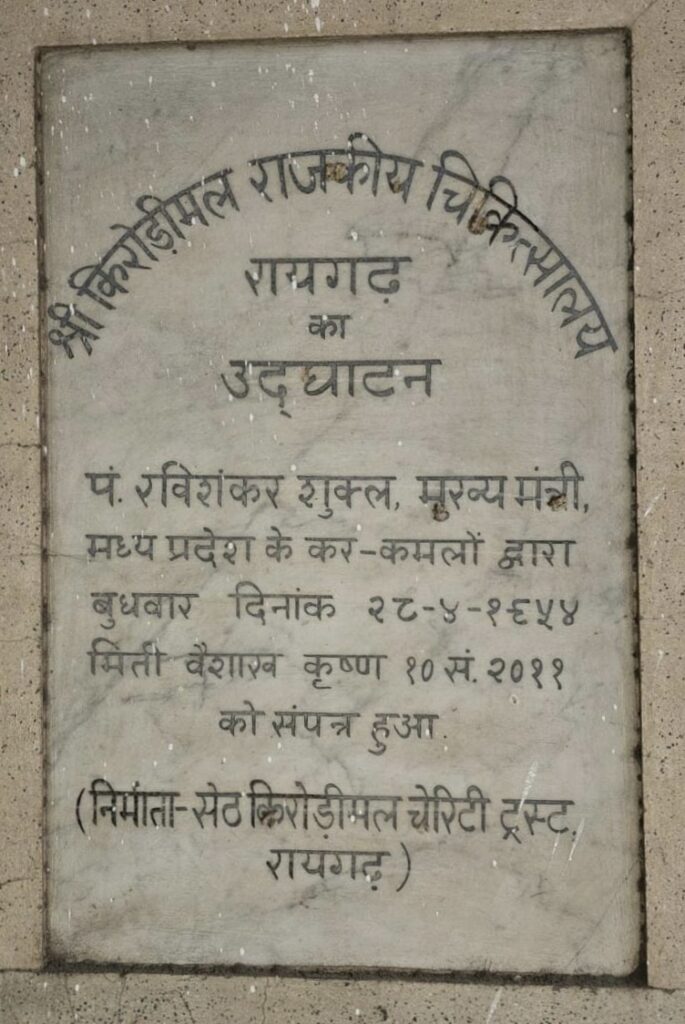 श्री किरोड़ीमल राजकीय चिकित्सालय
रायगढ़
का
उद्घाटन
पं. रविशंकर शुक्ल, मुख्य मंत्री,
मध्य प्रदेश के कर-कमलों द्वारा
बुधवार दिनांक २८-४-१९५४
मिती वैशाख कृष्ण १० सं. २०११
को संपन्न हुआ.
(निर्माता-सेठ किरोड़ीमल चेरिटी ट्रस्ट,
रायगढ़)